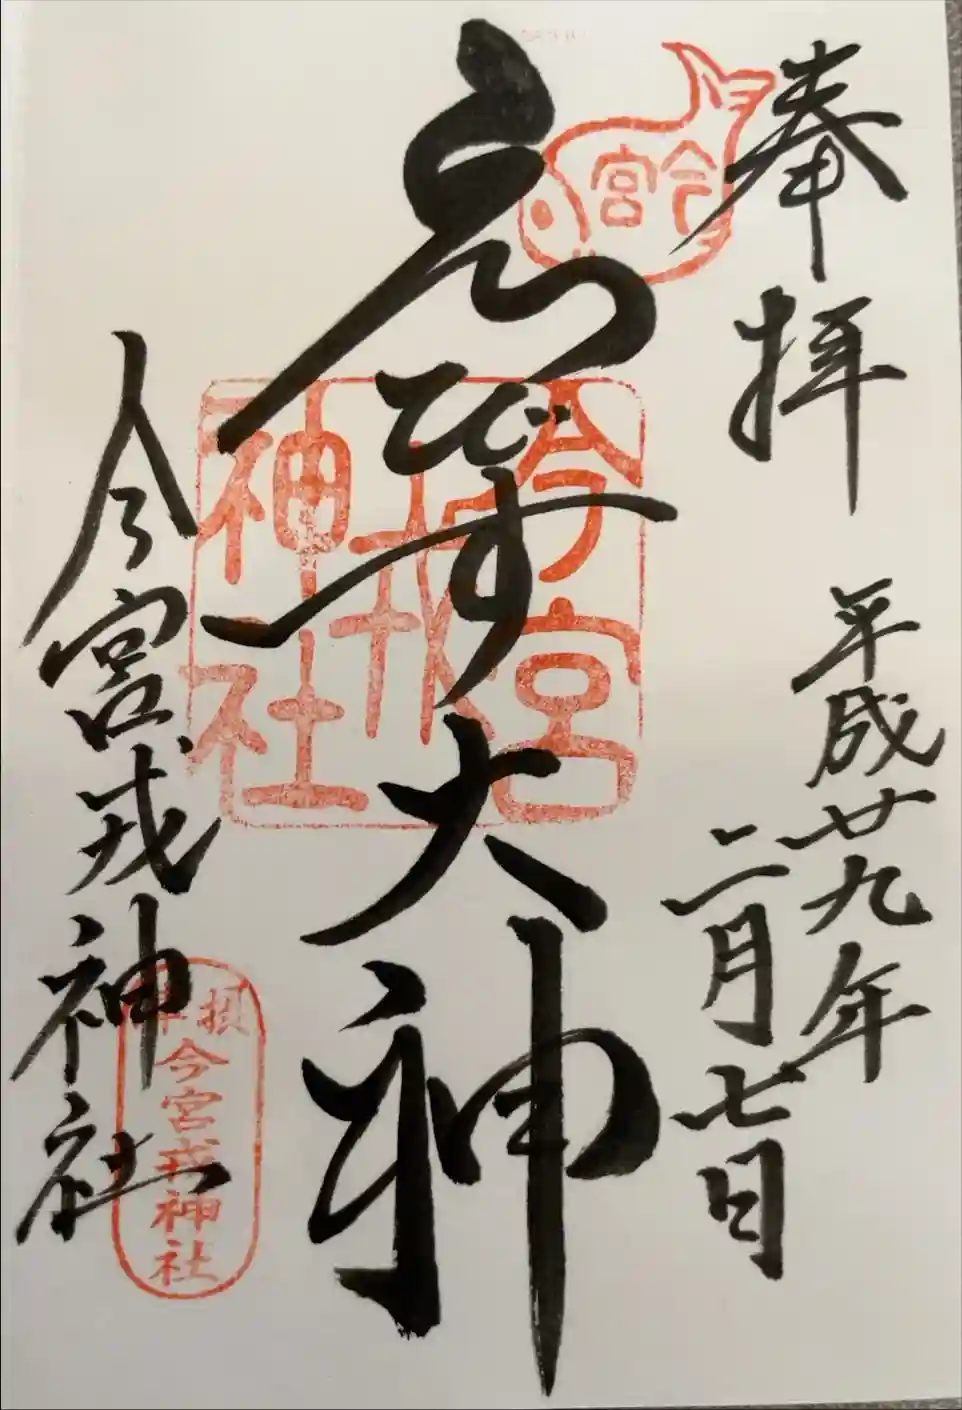 奉拝
平成廿九年
二月七日
今宮
ゑびす大神
今宮
戎
神社
今宮戎神社
摂津
今宮戎神社